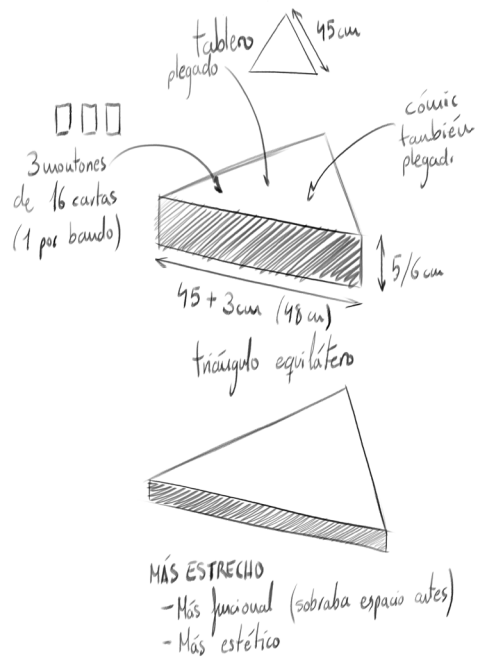 tablero
plegado
45cm
cómic
también
plegado
3 montones
de 16 cartas
(1 por bando)
5/6 cm
45 + 3cm (48 cm)
triángulo equilátero
MÁS ESTRECHO
- Más funcional (sobraba espacio antes)
- Más estético